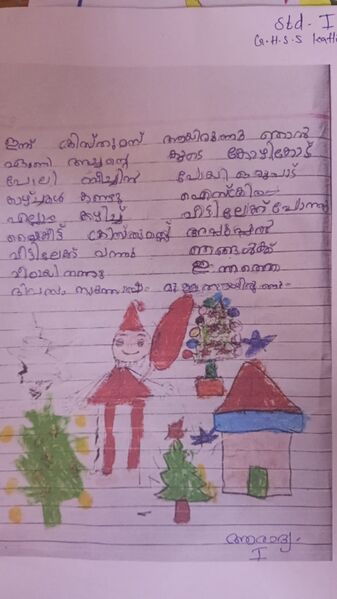 Std - I
G.H.S.S
ഇന്ന് ക്രിസ്തുമസ് ആയിരുന്നു ഞാൻ
അച്ഛന്റെ കൂടെ കോഴിക്കോട്
പോയി ബീച്ചിൽ പോയി കുറുപാട്
കാഴ്ചകൾ കണ്ടു ഐസ്ക്രീം
എല്ലാം കഴിച്ച് വീട്ടിലേക്ക് പോന്നു
വൈകീട്ട് ക്രിസ്തുമസ്സ് അപ്പൂപ്പൻ
വീട്ടിലേക്ക് വന്നു ഞങ്ങൾക്ക്
മിഠായി തന്നു ഇന്നത്തെ
ദിവസം സന്തോഷം
ആരാധ്യ
I